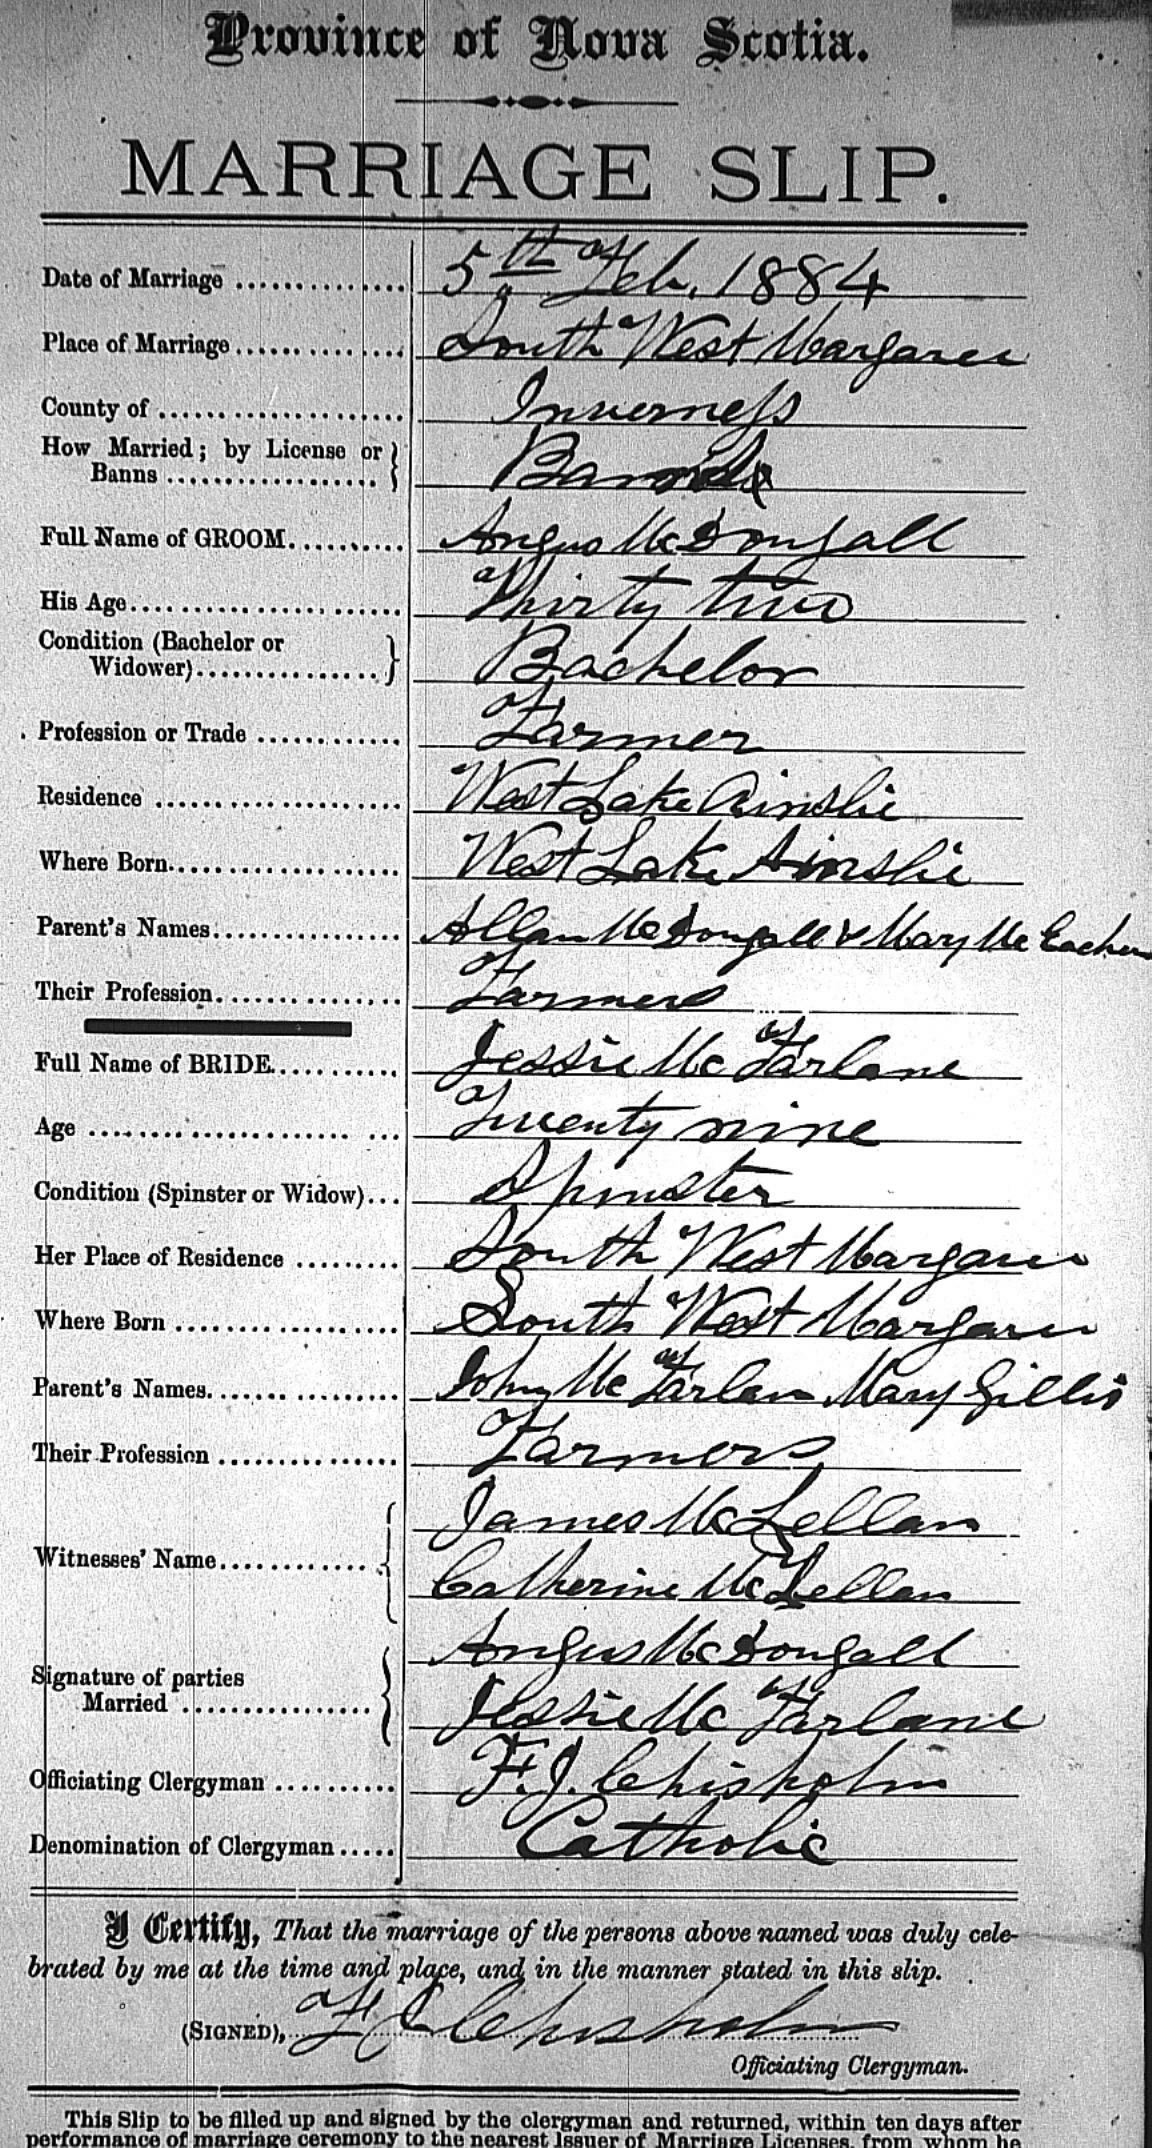 Province of Nova Scotia.
MARRIAGE SLIP.
Date of Marriage 5th Feb. 1884
Place of Marriage South West Margaree
County of Inverness
How Married; by License or
Banns Banns
Full Name of GROOM Angus McDougall
His Age Thirty two
Condition (Bachelor or
Widower) Bachelor
Profession or Trade Farmer
Residence West Lake Ainslie
Where Born West Lake Ainslie
Parent's Names Allan McDougall & Mary McEachern
Their Profession Farmers
Full Name of BRIDE Jessie McFarlane
Age Twenty nine
Condition (Spinster or Widow) Spinster
Her Place of Residence South West Margaree
Where Born South West Margaree
Parent's Names John McFarlan Mary Gillis
Their Profession Farmers
Witnesses' Name James McLellan
Catherine McLellan
Signature of parties Angus McDougall
Married Jessie McFarlane
Officiating Clergyman F. J. Chisholm
Denomination of Clergyman Catholic
I Certify, That the marriage of the persons above named was duly cele-
brated by me at the time and place, and in the manner stated in this slip.
(SIGNED), F J Chisholm
Officiating Clergyman.
This Slip to be filled up and signed by the clergyman and returned, within ten days after
performance of marriage ceremony to the nearest Issuer of Marriage Licenses, from whom he